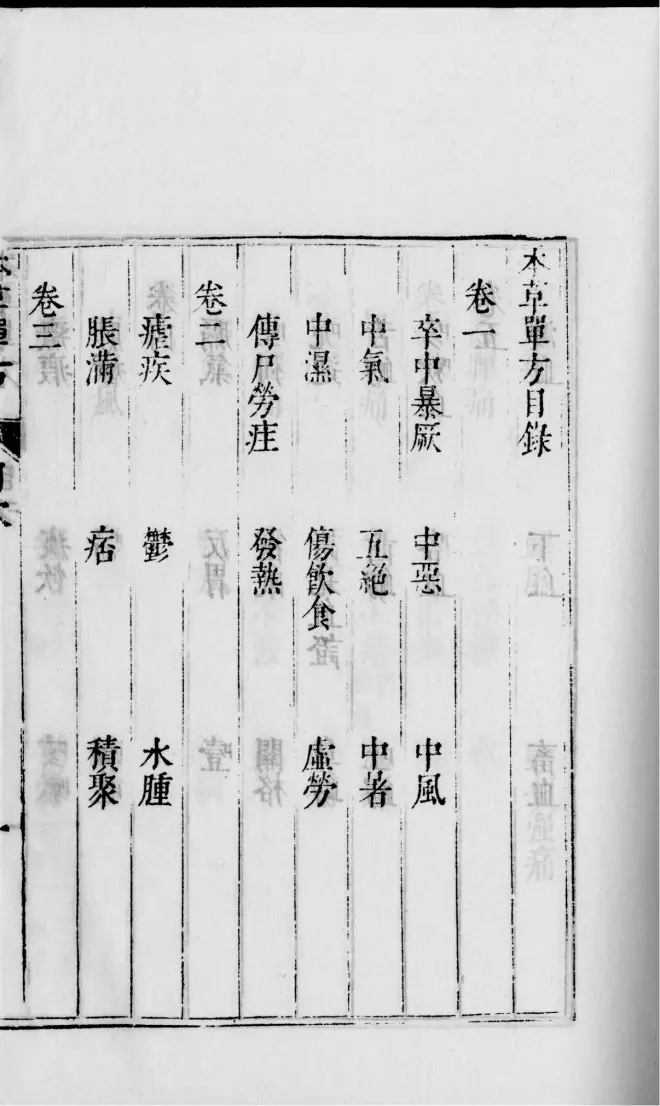 本草單方目錄
卷一
卒中暴厥 中惡 中風
中氣 五絕 中暑
中濕 傷飲食 虛勞
傳尸勞疰 發熱
卷二
瘧疾 鬱 水腫
脹滿 痞 積聚
卷三
本草單方 目次 一